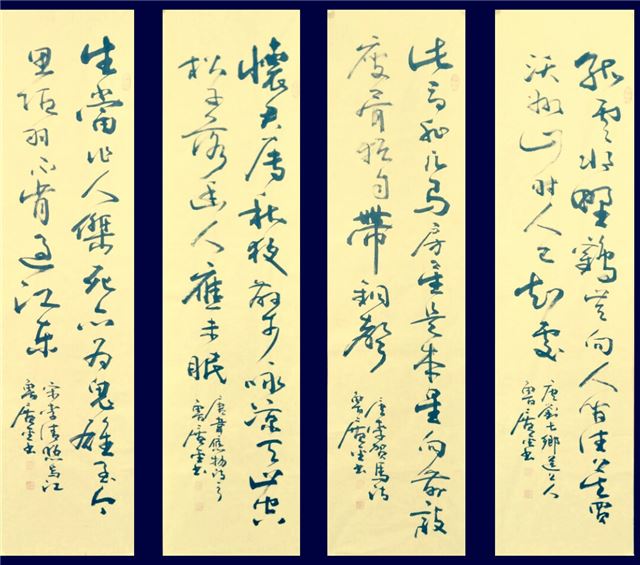 孤雲將野鶴豈向人間住莫買
沃洲山時人已知處
唐劉長卿送上人
此馬非凡馬房星是本星向前敲
瘦骨猶自帶銅聲
唐李賀馬詩
懷君屬秋夜散步詠涼天山空
松子落幽人應未眠
唐韋應物詩
生當作人傑死亦為鬼雄至今
思項羽不肯過江東
宋李清照烏江